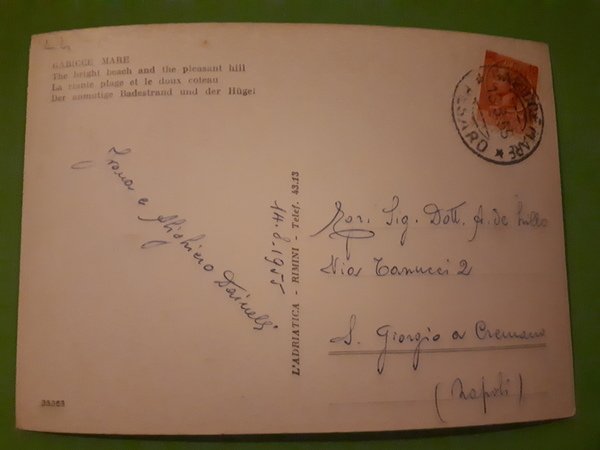 GABICCE MARE
The bright beach and the pleasant hill
La riante plage et le doux coteau
Der anmutige Badestrand und der Hügel
GABICCE MARE
PESARO
Irma e Alighiero
14.8.1955
L'ADRIATICA - RIMINI - Telef. 43.13
Sig. Dott. A. de Lillo
Via Tanucci 2
S. Giorgio a Cremano
(Napoli)